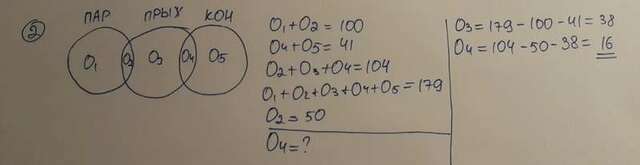 ②
ПАР ПРЫЖ КОН
O₁ O₂ O₃ O₄ O₅
O₁+O₂=100
O₄+O₅=41
O₂+O₃+O₄=104
O₁+O₂+O₃+O₄+O₅=179
O₂=50
O₄=?
O₃=179-100-41=38
O₄=104-50-38=16